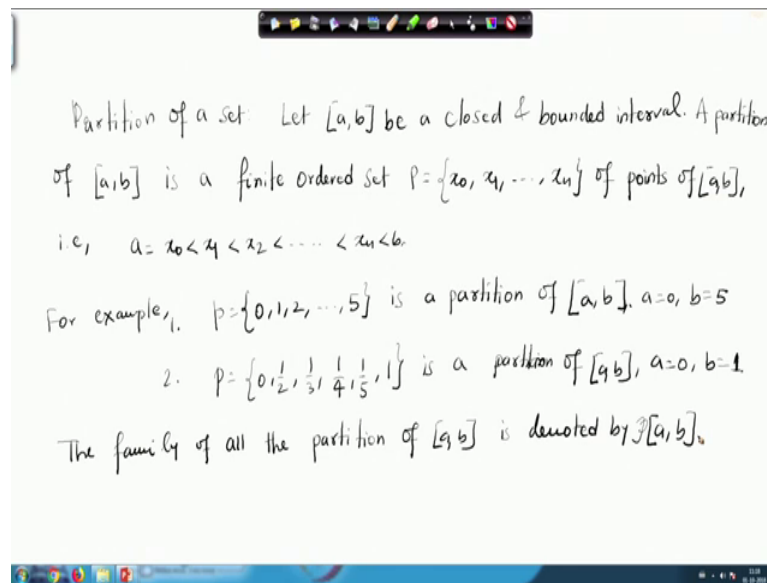 Partition of a set Let [a,b] be a closed & bounded interval. A partition
of [a,b] is a finite ordered set P={x0, x1, ..., xn} of points of [a,b],
i.e, a= x0 < x1 < x2 < ..... < xn < b.
For example, 1. p={0,1,2, ...,5} is a partition of [a,b]. a=0, b=5
2. p={0, 1/2, 1/3, 1/4, 1/5, 1} is a partition of [a,b], a=0, b=1
The family of all the partition of [a,b] is denoted by P[a,b].